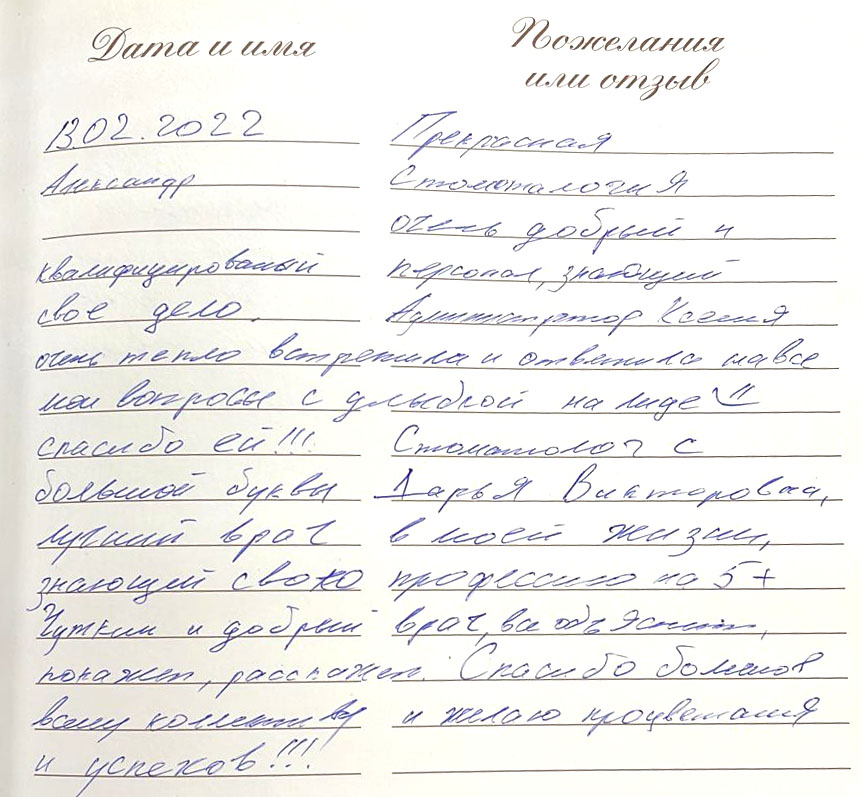 Дата и имя
Пожелания
или отзыв
13.02.2022 Прекрасная
Александр Стоматология
очень добрый и
квалифицированый персонал, знающий
свое дело. Администратор Ксения
очень тепло встретила и ответила на все
мои вопросы с улыбкой на лице !!
спасибо ей!!! Стоматолог с
большой буквы Дарья Викторовна,
лучший врач в моей жизни,
знающий свою профессию на 5+
Чуткий и добрый врач, все объяснит,
покажет, расскажет. Спасибо большое
всему коллективу и желаю процветания
и успехов!!!